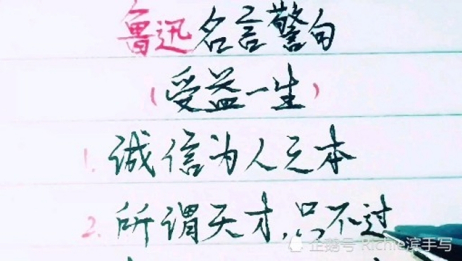 鲁迅名言警句
(受益一生)
1. 诚信为人之本
2. 所谓天才,只不过
企鹅号 Richie滨手写